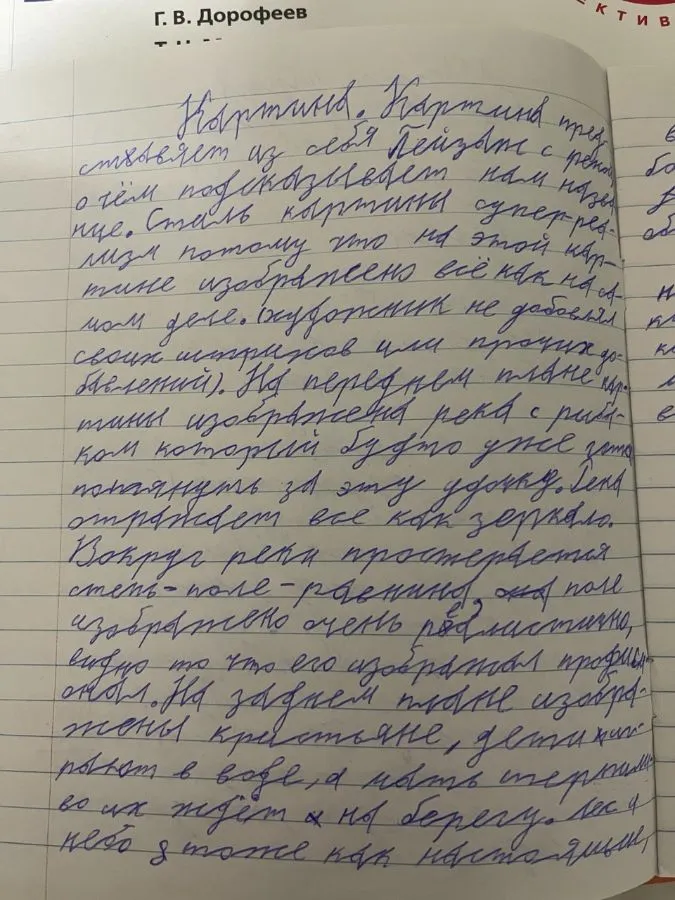 Г. В. Дорофеев
ЕКТИВ
Картина. Картина пред-
ставляет из себя Пейзаж с рекой
о чём подсказывает нам назва
ние. Стиль картины супер-реа-
лизм потому что на этой кар-
тине изображено всё как на са-
мом деле. (художник не добовлял
своих штрихов или прочих до-
бавлений). На переднем плане кар-
тины изображена река с рыба-
ком который будто уже готов
потянуть за эту удочку. Река
отражает все как зеркало.
Вокруг реки простерается
степь-поле-равнина, поле
изображено очень реалистично,
видно то что его изображал професи-
онал. На заднем плане изобра-
жены кристьяне, дети иг-
рают в воде, а мать терпили-
во их ждёт на берегу. Лес и
небо тоже как настоящие,